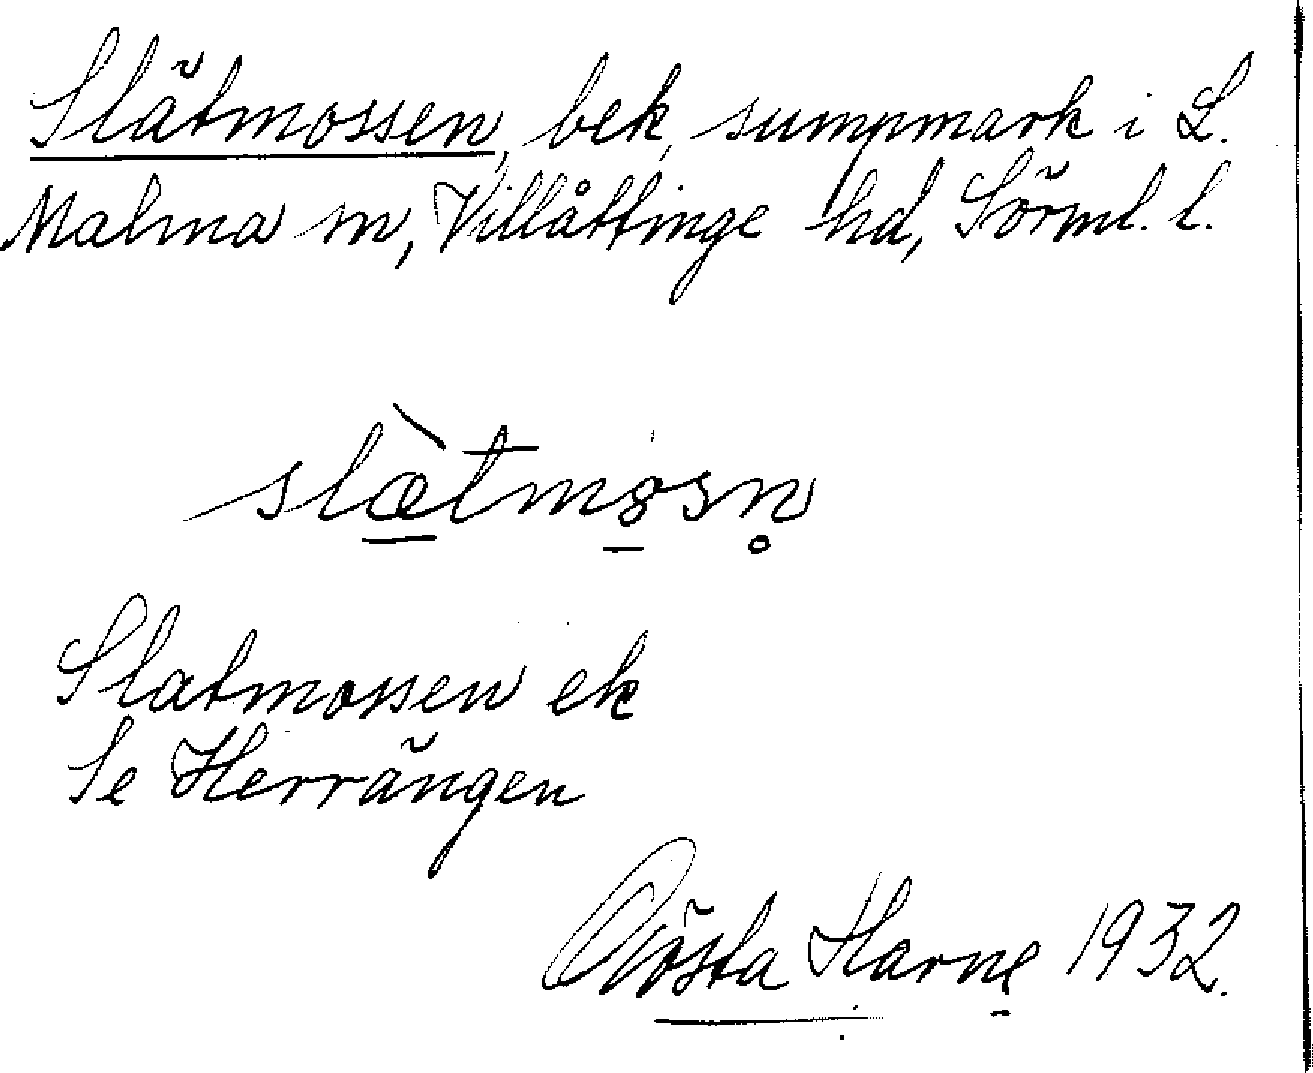 Slätmossen, bek, sumpmark i L.
Malma sn, Villåttinge hd, Sörml. l.
slæ̀tmosn̥
Slatmossen ek
Se Herrängen
Gösta Harne 1932.